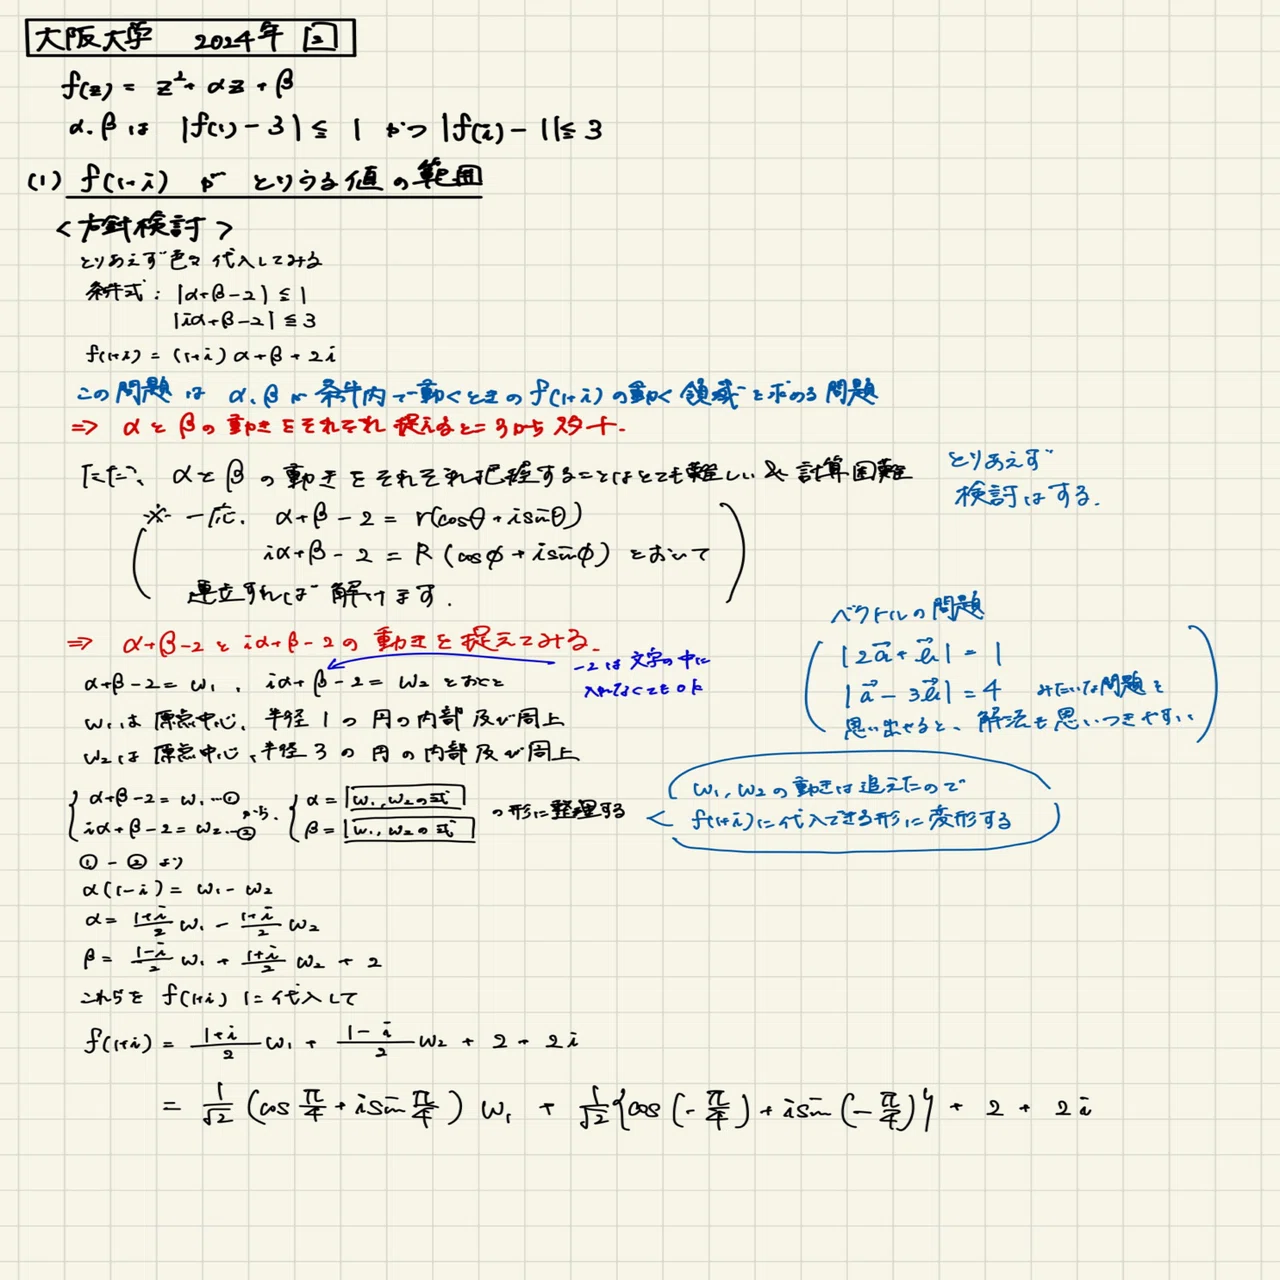 大阪大学 2024年 [2]
f(z) = z² + αz + β
α.βは |f(1) - 3| ≦ 1 かつ |f(i) - 1| ≦ 3
(1) f(1+i) が とりうる値の範囲
<方針検討>
とりあえず色々代入してみる
条件式 : |α+β-2| ≦ 1
|iα+β-2| ≦ 3
f(1+i) = (1+i)α+β+2i
この問題は α.βが条件内で動くときのf(1+i)の動く領域を求める問題
⇒ αとβの動きをそれぞれ捉えるところからスタート.
ただ、αとβの動きをそれぞれ把握することはとても難しい & 計算困難
とりあえず
検討はする.
※ 一応. α+β-2 = r(cosθ+isinθ)
iα+β-2 = R(cosφ+isinφ) とおいて
連立すれば解けます.
⇒ α+β-2とiα+β-2の動きを捉えてみる.
-2は文字の中に
入れなくてもOK
ベクトルの問題
|2a⃗+b⃗| = 1
|a⃗-3b⃗| = 4 みたいな問題を
思い出せると、解法も思いつきやすい
α+β-2=w₁, iα+β-2=w₂とおくと
w₁は原点中心、半径1の円の内部及び周上
w₂は原点中心、半径3の円の内部及び周上
{α+β-2=w₁…① iα+β-2=w₂…② から. {α=[w₁,w₂の式] β=[w₁,w₂の式] の形に整理する
w₁,w₂の動きは追えたので
f(1+i)に代入できる形に変形する
①-②より
α(1-i) = w₁-w₂
α = (1+i)/2 w₁ - (1+i)/2 w₂
β = (1-i)/2 w₁ + (1+i)/2 w₂ + 2
これらを f(1+i)に代入して
f(1+i) = (1+i)/2 w₁ + (1-i)/2 w₂ + 2 + 2i
= 1/√2 (cos π/4 + isin π/4) w₁ + 1/√2 {cos(-π/4) + isin(-π/4)} + 2 + 2i